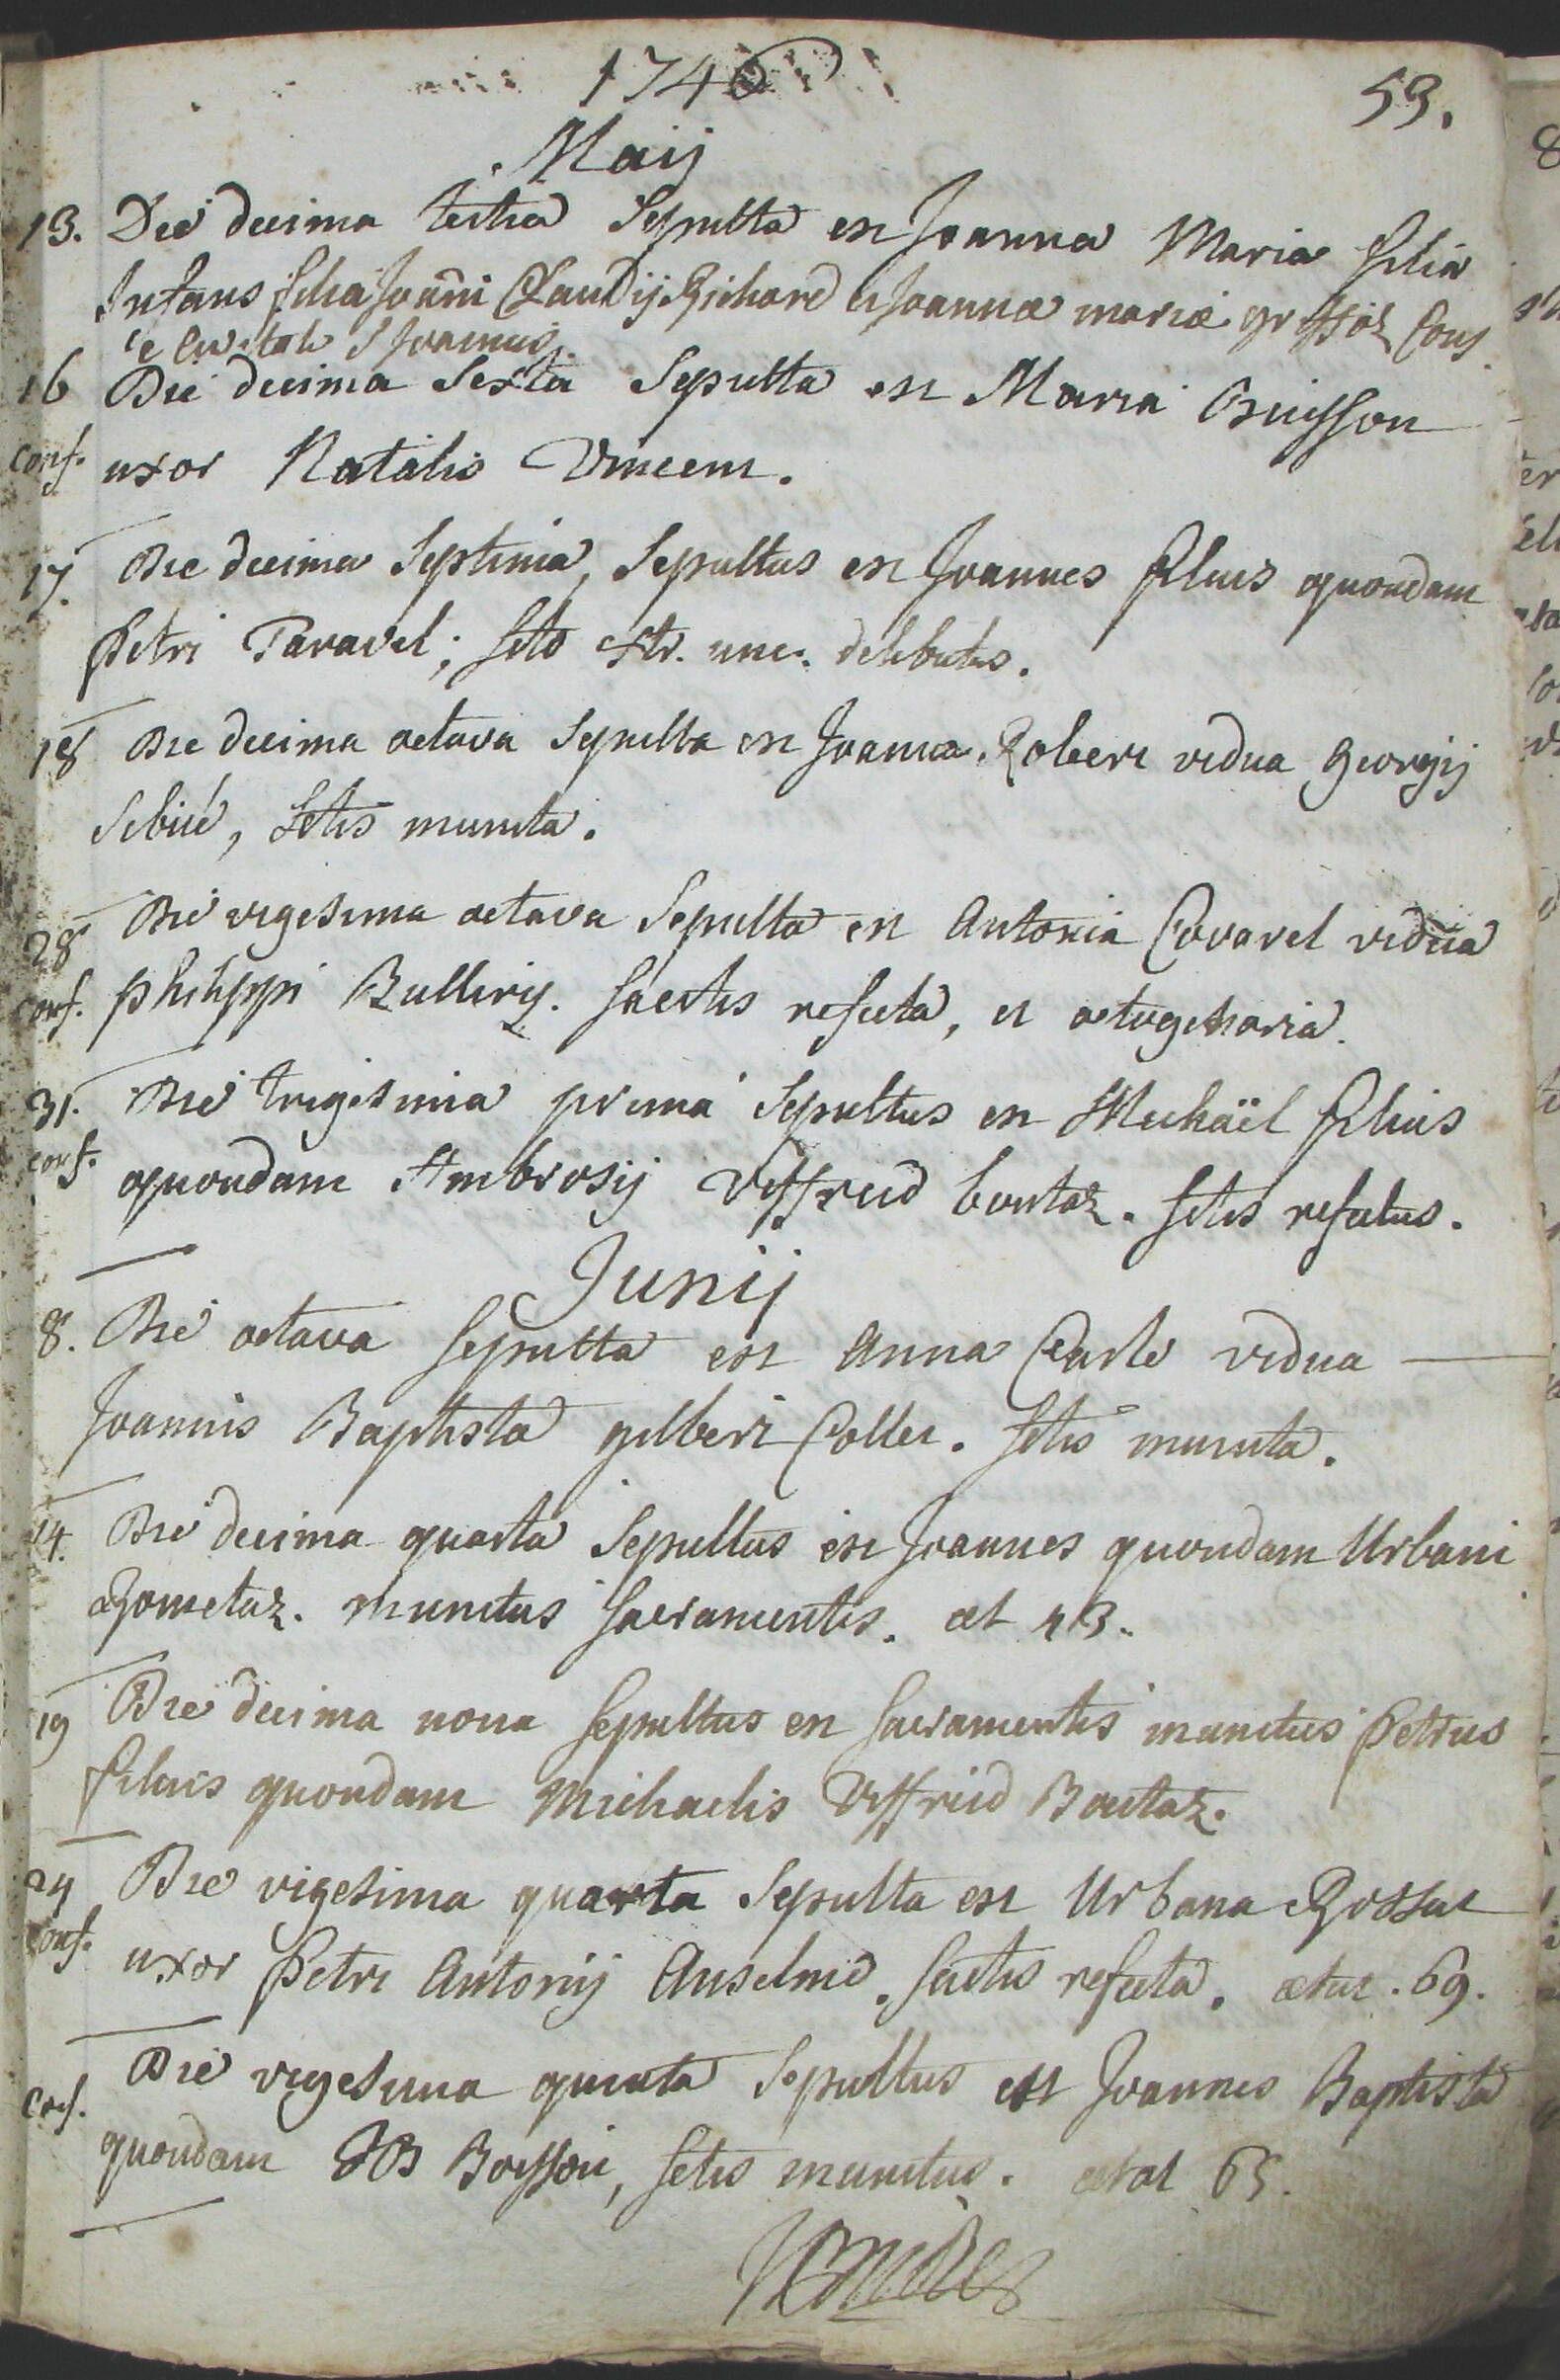 1746
59.
Maij
13. Die decima tertia Sepulta est Joanna Maria filia
Infans filia Joañi Claudij Richard et Joannæ mariæ grossoz Conj.
e Civitate S Joannis.
16 Die decima Sexta Sepulta est Maria Buisson
conf. uxor Natalis Vincent.
17. Die decima Septima, Sepultus est Joannes filius quondam
Petri Taravel; seto extr. unc. delibutus.
18 Die decima octava Sepulta est Joanna Robert vidua Georgij
Sibué, Setis munita.
28 Die vigesima octava Sepulta est Antonia Covarel vidua
conf. philippi Rulliery. sactis refecta, et octogenaria.
31. Die trigesima prima Sepultus est Michaël filius
conf. quondam Ambrosij Viffreid boutaz. setis refectus.
Junij
8. Die octava sepulta est Anna Carle vidua
Joannis Baptista gilbert Collet. setis munita.
14. Die decima quarta Sepultus est Joannes quondam Urbani
Rometaz. munitus sacramentis. æt 43.
19 Die decima nona sepultus est sacramentis munitus Petrus
filius quondam Michaelis Viffreid Boutaz.
24 Die vigesima quarta Sepulta est Urbana Rossat
conf. uxor Petri Antonij Anselmd. sactis refecta. ætat. 69.
Die vigesima quinta Sepultus est Joannes Baptista
conf. quondam JB Boisson, setis munitus. ætat 65.